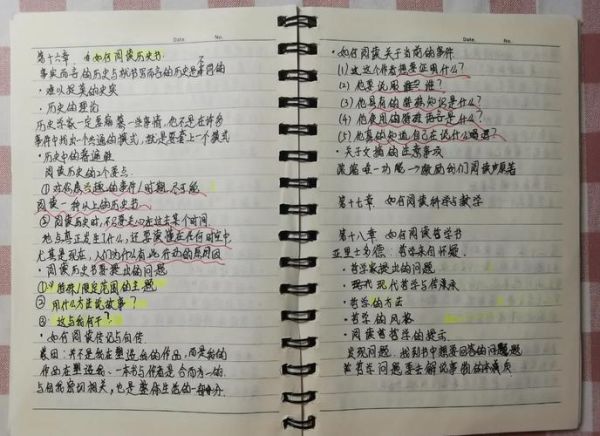 Date. No.
第十六章、如何阅读历史书
事实而言的历史与就书写而言的历史是不同的
·难以捉摸的史实
·历史的理论
历史学家一定要编纂一些事情,他不是在许多
事件中找出一个共通的模式,就是要套上一个模式
·历史中的普遍性
阅读历史的2个要点:
①对你感兴趣的事件/时期,尽可能
阅读一种以上的历史书
②阅读历史时,不只要关心在过去某个时间
地点真正发生了什么,还要读懂在任何时空中
尤其是现在,人们为什么有此行动的原因
·阅读历史书要提出的问题
①特殊/限定范围的主题
②用什么方法说故事?
③这与我何干?
·如何阅读传记与自传
蒙田:并不是我在塑造我的作品,而是我的
作品在塑造我、一本书与作者是合而为一的
与自我密切相关,也是整体生活的一部分
Date. No.
·如何阅读关于当前的事件
(1)这个作者想要证明什么?
(2)他要说服谁?
(3)他具有的特殊知识是什么?
(4)他使用的特殊语言是什么?
(5)他真的知道自己在说什么吗?
·关于文摘的注意事项
浓缩唯一功能→激励我们阅读原著
第十七章 如何阅读科学与数学
第十八章 如何阅读哲学书
亚里士多德 哲学来自怀疑
·哲学家提出的问题
·现代哲学与传承
·哲学的方法
·哲学的风格
·阅读哲学的提示
发现问题,找到书中想要回答的问题
哲学问题要去解说事物的本质